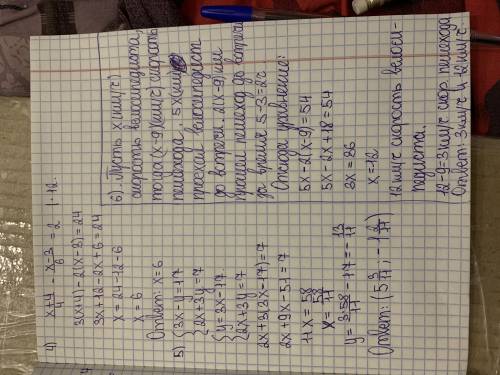 4
4) x+4/4 - x-3/6 = 2 | · 12
3(x+4) - 2(x-3) = 24
3x + 12 - 2x + 6 = 24
x = 24 - 12 - 6
x = 6
Ответ: x = 6
5) { 3x - y = 17
{ 2x + 3y = 7
{ y = 3x - 17
{ 2x + 3y = 7
2x + 3(3x - 17) = 7
2x + 9x - 51 = 7
11x = 58
x = 58/11
y = 3·58/11 - 17 = - 13/11
Ответ: (5 3/11; -1 2/11)
6). Пусть x (км/ч)
скорость велосипедиста,
тогда (x-9) (км/ч) скорость
пешехода. 5x (км)
проехал велосипедист
до встречи. 2(x-9) км
прошел пешеход до встречи
за время 5-3=2ч
Отсюда уравнение:
5x - 2(x-9) = 54
5x - 2x + 18 = 54
3x = 36
x = 12
12 км/ч скорость велоси-
педиста.
12-9=3 км/ч скор. пешехода
Ответ: 3 км/ч и 12 км/ч.